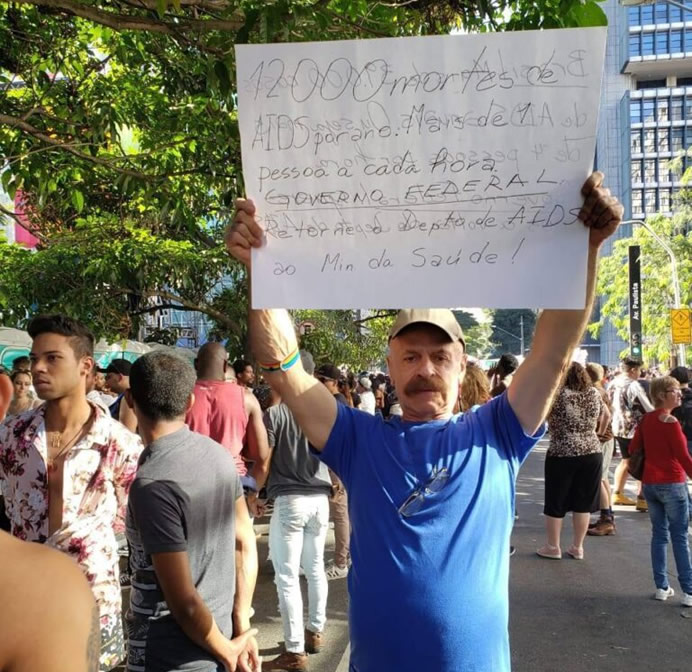 12000 mortes de
AIDS por ano. Mais de 1
pessoa a cada hora.
GOVERNO FEDERAL
Retorne o Depto de AIDS
ao Min da Saúde!
Av. Paulista